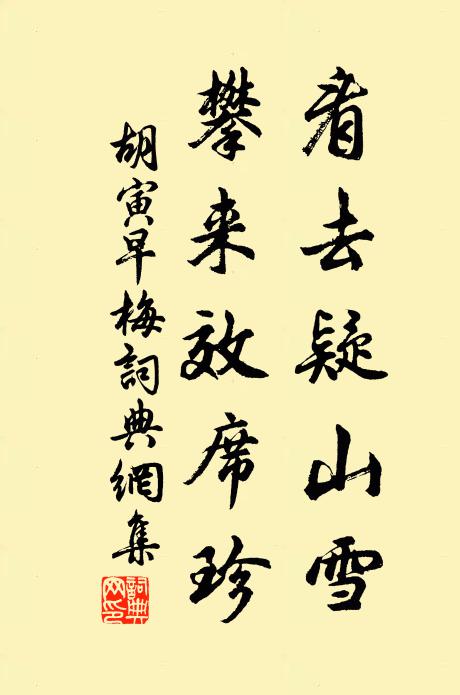 看去疑山雪
攀来效席珍
胡寅早梅詞典網集
詞典網印